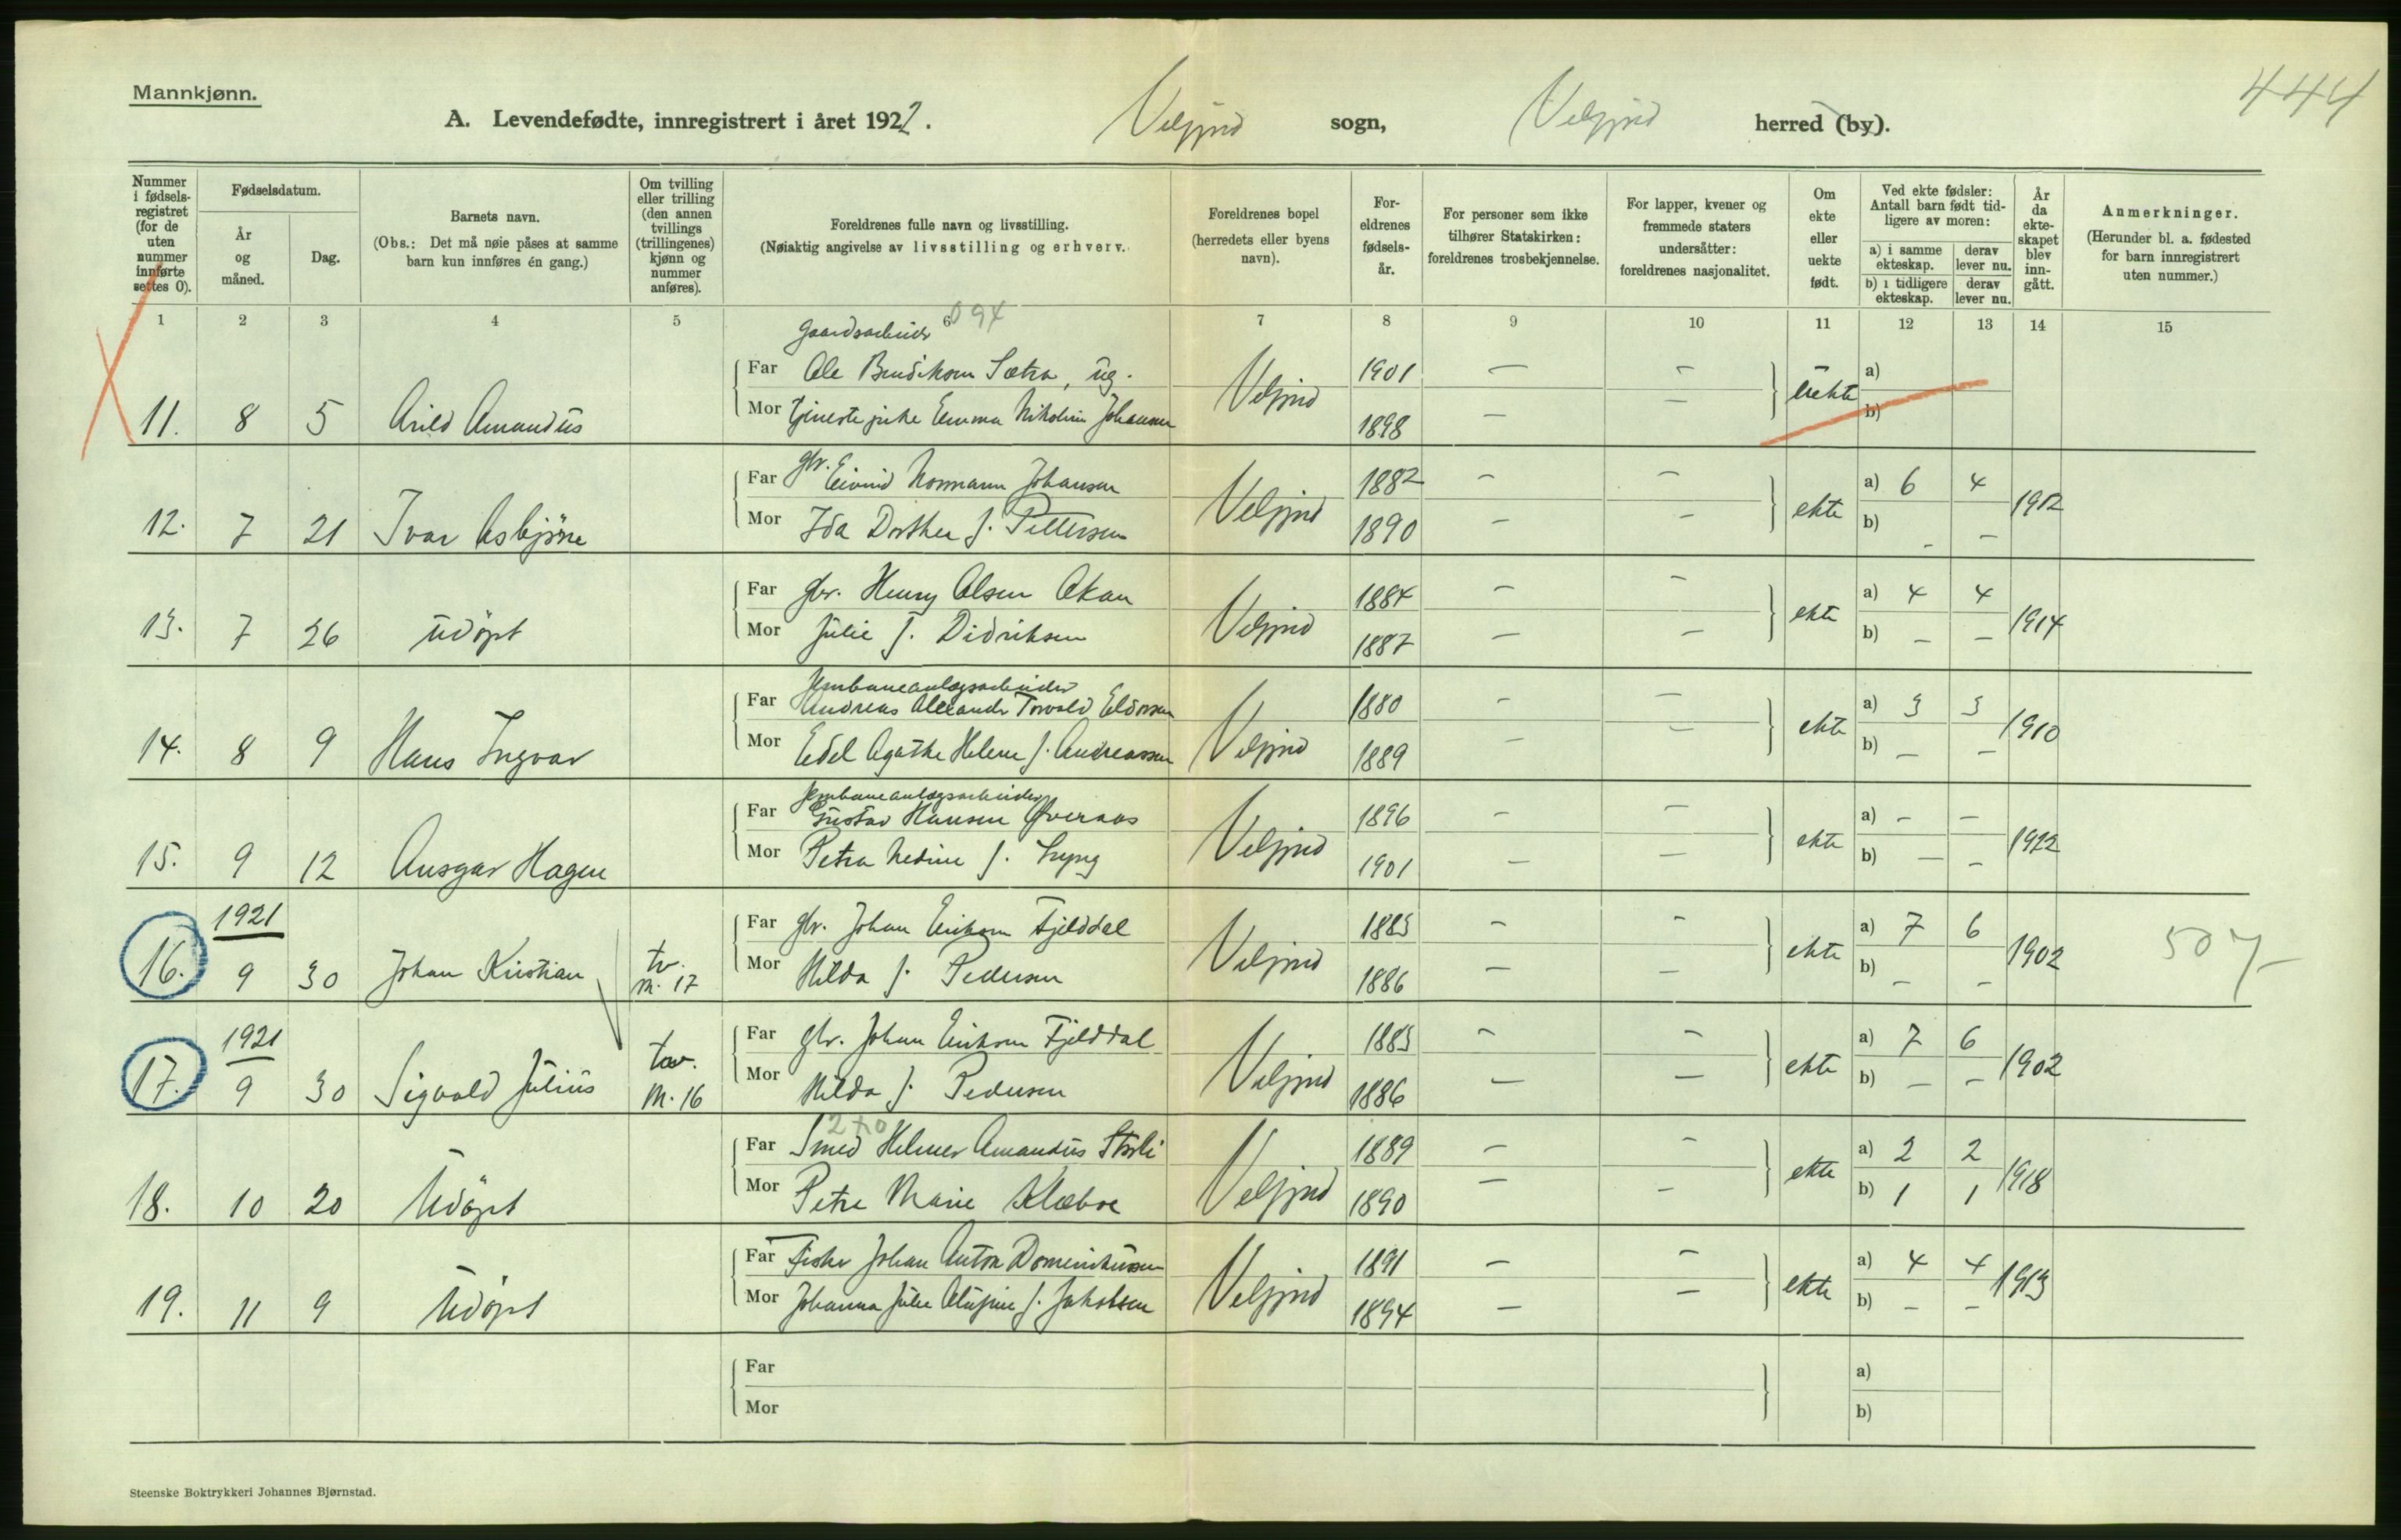 Mannkjønn.
444
A. Levendefødte, innregistrert i året 1922. Velfjord sogn, Velfjord herred (by).
Nummer i fødsels-registret (for de uten nummer innførte settes 0).
Fødselsdatum.
År og måned.
Dag.
Barnets navn.
(Obs.: Det må nøie påses at samme barn kun innføres én gang.)
Om tvilling eller trilling (den annen tvillings (trillingenes) kjønn og nummer anføres).
Foreldrenes fulle navn og livsstilling.
(Nøiaktig angivelse av livsstilling og erhverv.)
Foreldrenes bopel (herredets eller byens navn).
For-eldrenes fødsels-år.
For personer som ikke tilhører Statskirken: foreldrenes trosbekjennelse.
For lapper, kvener og fremmede staters undersåtter: foreldrenes nasjonalitet.
Om ekte eller uekte født.
Ved ekte fødsler: Antall barn født tid-ligere av moren:
a) i samme ekteskap. derav lever nu.
b) i tidligere ekteskap. derav lever nu.
År da ekte-skapet blev inn-gått.
Anmerkninger.
(Herunder bl. a. fødested for barn innregistrert uten nummer.)
1 2 3 4 5 6 7 8 9 10 11 12 13 14 15
094
Gaardsarbeider
Far Ole Bendiksen Sætra, ug. 1901 — — a)
11. 8 5 Arild Amandus Velfjord uekte
Mor tjenestepike Emma Nikoline Johansen 1898 — — b)
Far gbr. Eivind Normann Johansen 1882 — — a) 6 4
12. 7 21 Ivar Asbjørn Velfjord ekte 1912
Mor Ida Dorthea f. Pettersen 1890 — — b) — —
Far gbr. Henry Olsen Okan 1884 — — a) 4 4
13. 7 26 Udöpt Velfjord ekte 1914
Mor Julie f. Didriksen 1887 — — b) — —
Jernbaneanlægsarbeider
Far Andreas Alexander Torvald Eldorsen 1880 — — a) 3 3
14. 8 9 Hans Ingvar Velfjord ekte 1910
Mor Edel Agathe Helene f. Andreassen 1889 — — b) — —
Jernbaneanlægsarbeider
Far Gustav Hansen Øveraas 1896 — — a) — —
15. 9 12 Ansgar Hagen Velfjord ekte 1922
Mor Petra Nedine f. Lyng 1901 — — b) — —
1921
Far gbr. Johan Eriksen Fjelddal 1883 — — a) 7 6
16. 9 30 Johan Kristian tv. m. 17 Velfjord ekte 1902 507
Mor Hilda f. Pedersen 1886 — — b) — —
1921
Far gbr. Johan Eriksen Fjelddal 1883 — — a) 7 6
17. 9 30 Sigvald Julius tov. m. 16 Velfjord ekte 1902
Mor Hilda f. Pedersen 1886 — — b) — —
270
Far Smed Helmer Amandus Storli 1889 — — a) 2 2
18. 10 20 Udöpt Velfjord ekte 1918
Mor Petra Marie Klæboe 1890 — — b) 1 1
Far Fisker Johan Anton Dominikussen 1891 — — a) 4 4
19. 11 9 Udöpt Velfjord ekte 1913
Mor Johanna Julie f. Jakobsen 1894 — — b) — —
Far a)
Mor b)
Steenske Boktrykkeri Johannes Bjørnstad.